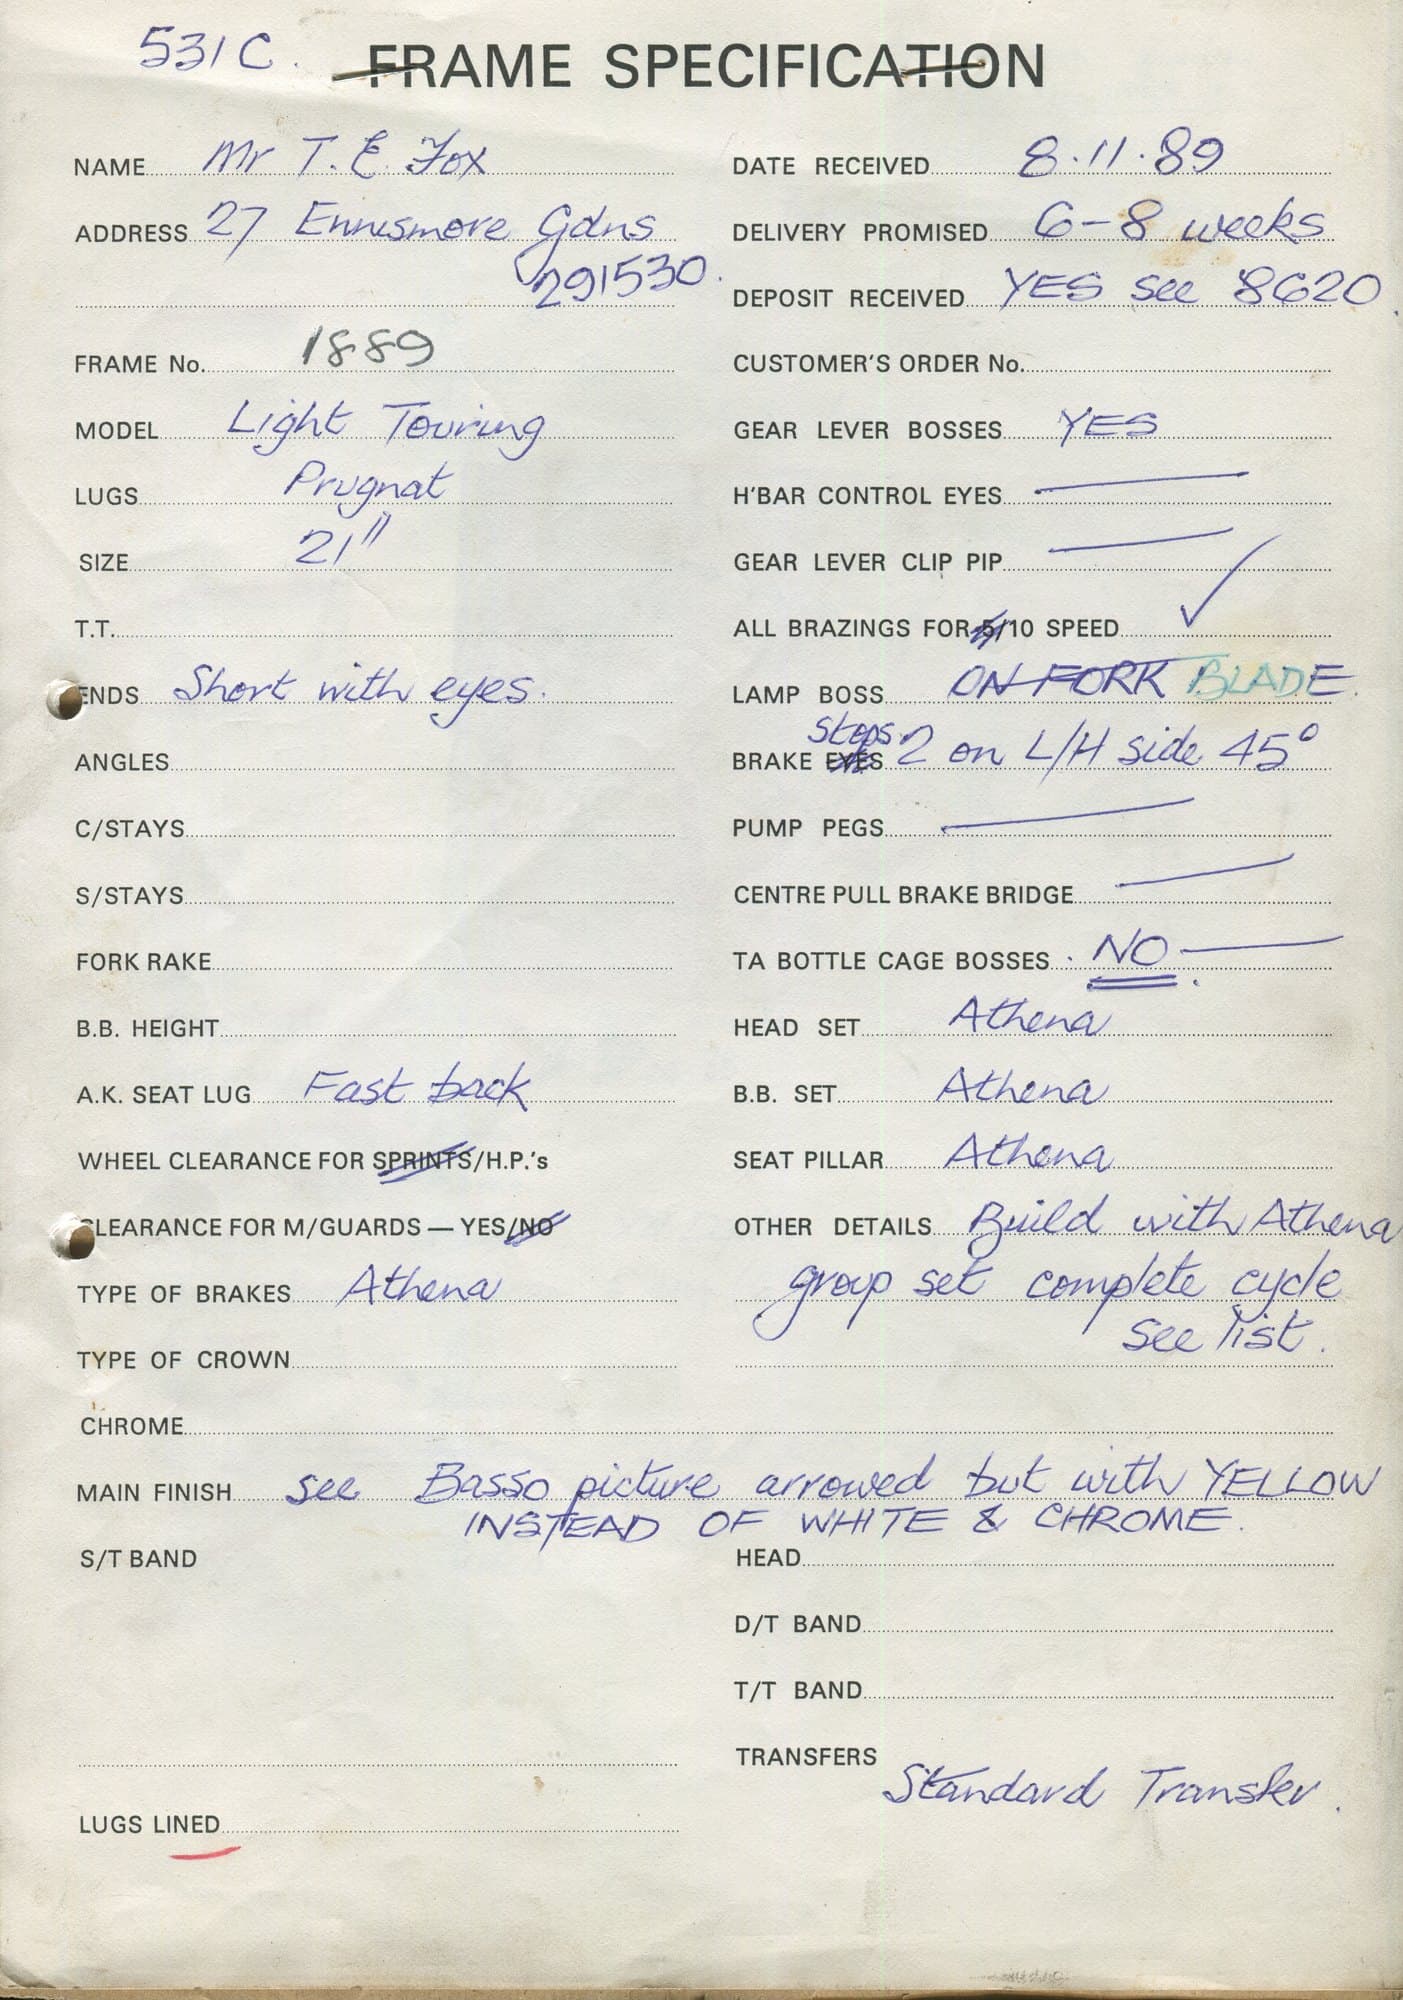 531C.
FRAME SPECIFICATION
NAME Mr T. E. Fox
ADDRESS 27 Ennismore Gdns
291530.
FRAME No. 1889
MODEL Light Touring
LUGS Prugnat
SIZE 21"
T.T.
ENDS Short with eyes.
ANGLES
C/STAYS
S/STAYS
FORK RAKE
B.B. HEIGHT
A.K. SEAT LUG Fast back
WHEEL CLEARANCE FOR SPRINTS/H.P.'s
CLEARANCE FOR M/GUARDS — YES/NO
TYPE OF BRAKES Athena
TYPE OF CROWN
DATE RECEIVED 8.11.89
DELIVERY PROMISED 6-8 weeks
DEPOSIT RECEIVED YES see 8620.
CUSTOMER'S ORDER No.
GEAR LEVER BOSSES YES
H'BAR CONTROL EYES —
GEAR LEVER CLIP PIP —
ALL BRAZINGS FOR 5/10 SPEED ✓
LAMP BOSS ON FORK BLADE.
BRAKE EYES stops. 2 on L/H side 45°
PUMP PEGS —
CENTRE PULL BRAKE BRIDGE —
TA BOTTLE CAGE BOSSES . NO —.
HEAD SET Athena
B.B. SET Athena
SEAT PILLAR Athena
OTHER DETAILS Build with Athena
group set complete cycle
see list.
CHROME
MAIN FINISH see Basso picture arrowed but with YELLOW
INSTEAD OF WHITE & CHROME.
S/T BAND
LUGS LINED
HEAD
D/T BAND
T/T BAND
TRANSFERS
Standard Transfer.